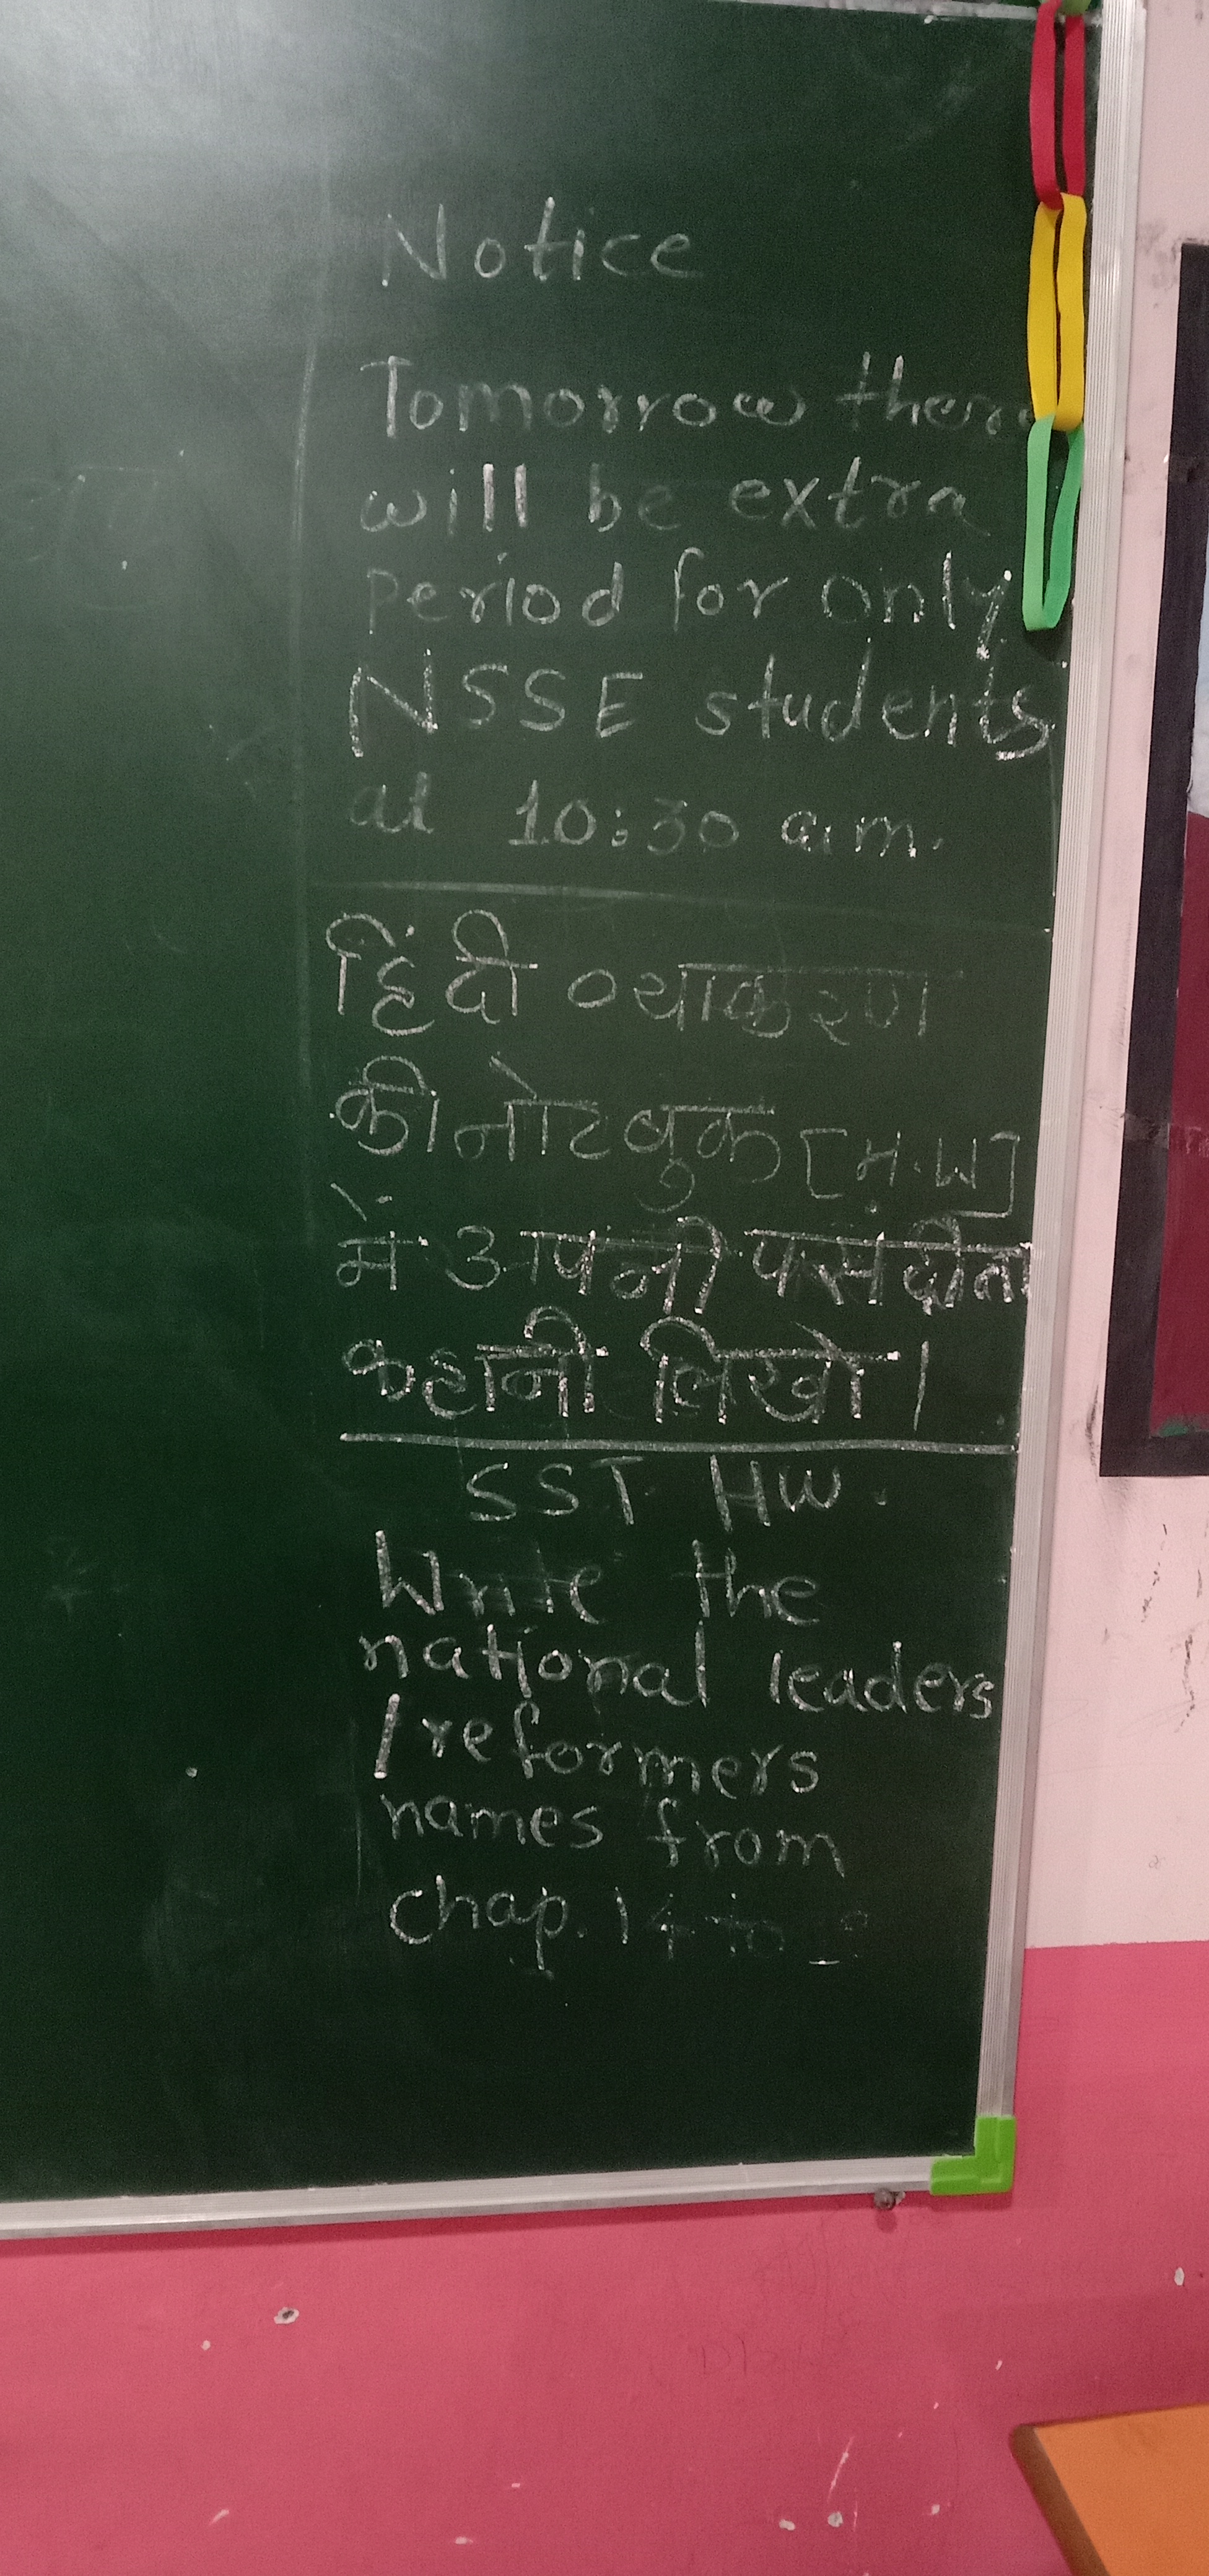 Notice
Tomorrow there
will be extra
period for only
NSSE students
at 10:30 a.m.
हिंदी व्याकरण
की नोटबुक
में अपनी पसंदीता
कहानी लिखो।
SST HW.
Write the
national leaders
/reformers
names from
chap. 14 to